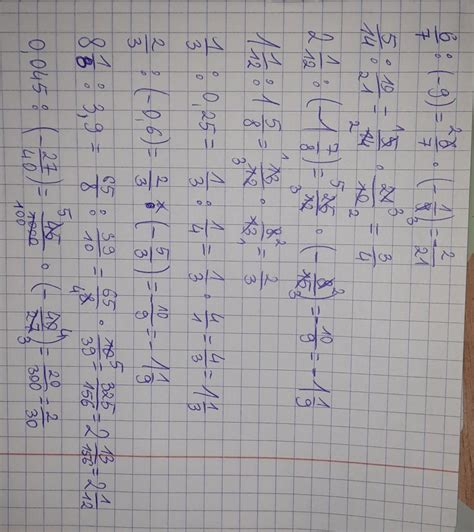 6/7 : (-9) = 6/7 · (-1/9) = -2/21
5/14 : 10/21 = 5/14 · 21/10 = 3/4
2 1/12 : (-1 7/8) = 25/12 · (-8/15) = -10/9 = -1 1/9
1 1/12 : 1 5/8 = 13/12 · 8/13 = 2/3
1/3 : 0,25 = 1/3 : 1/4 = 1/3 · 4/1 = 4/3 = 1 1/3
2/3 : (-0,6) = 2/3 · (-5/3) = -10/9 = -1 1/9
8 1/8 : 3,9 = 65/8 : 39/10 = 65/8 · 10/39 = 325/156 = 2 13/156 = 2 1/12
0,045 : (-27/40) = 45/1000 · (-40/27) = 20/300 = 2/30